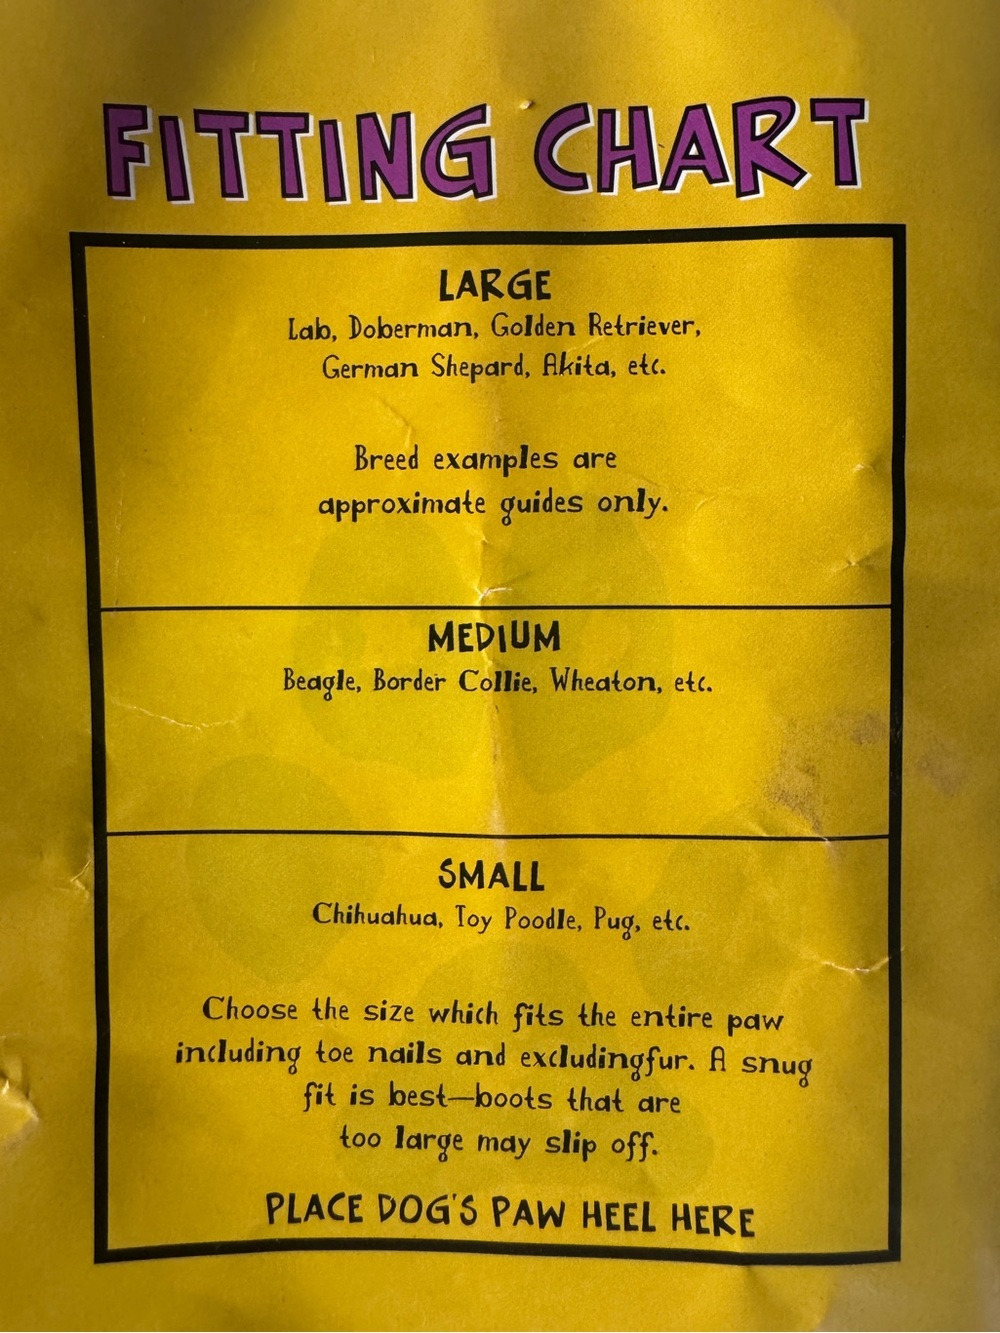 FITTING CHART
LARGE
Lab, Doberman, Golden Retriever,
German Shepard, Akita, etc.
Breed examples are
approximate guides only.
MEDIUM
Beagle, Border Collie, Wheaton, etc.
SMALL
Chihuahua, Toy Poodle, Pug, etc.
Choose the size which fits the entire paw
including toe nails and excludingfur. A snug
fit is best—boots that are
too large may slip off.
PLACE DOG'S PAW HEEL HERE